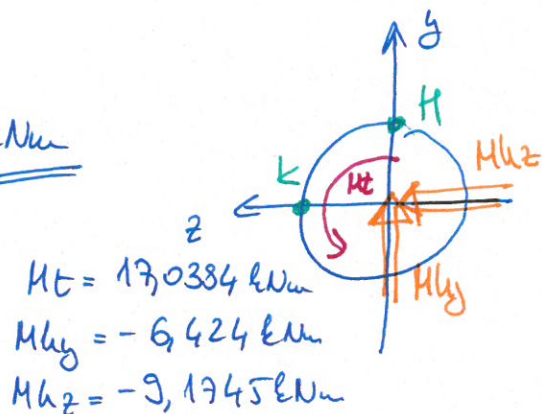 y
kNm
H
Mhz
k
Mt
z
Mhy
Mt = 17,0384 kNm
Mhy = - 6,424 kNm
Mhz = - 9,1745 kNm